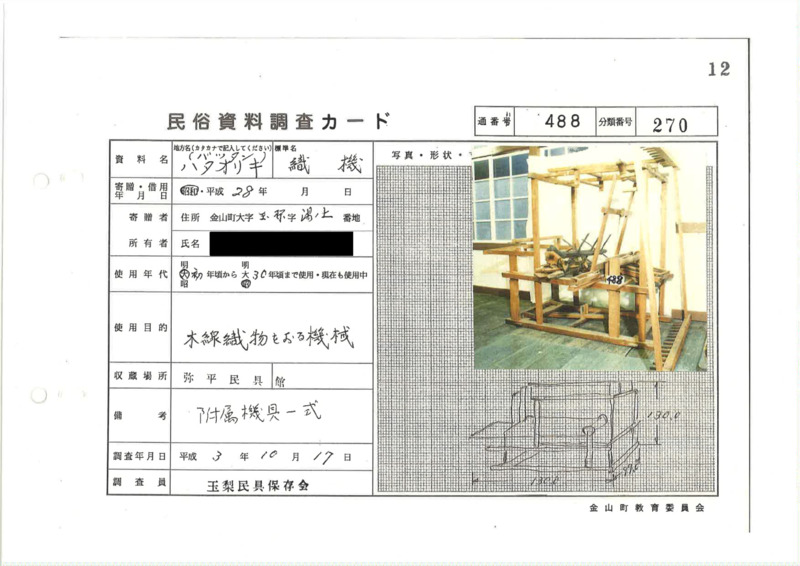 12
民俗資料調査カード
通番号 488 分類番号 270
資料名 地方名(カタカナで記入してください) (バッタン) ハタオリキ 標準名 織機
写真・形状・
寄贈・借用年月日 昭和・平成 28年 月 日
寄贈者 住所 金山町大字玉梨字湯ノ上 番地
所有者 氏名
使用年代 明大昭 初年頃から 明大昭 30年頃まで使用・現在も使用中
488
使用目的 木綿織物をおる機械
収蔵場所 弥平民具館
備考 附属機具一式
130.0
調査年月日 平成 3年 10月 17日
130.0
調査員 玉梨民具保存会
金山町教育委員会